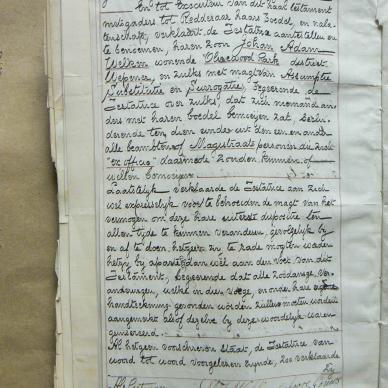 En tot Executeur van dit haar testament
mitsgaders tot Redderaar haars boedel, en nala-
tenschap, verklaart de Testatrice aantestellen en
te benoemen, haren Zoon Johan Adam
wonende district
Wepener, en zulks met magt van Assumptie
Substitutie en Surrogatie, begeerende de
Testatrice over zulks, dat zich niemand an-
ders met haren boedel bemoeyen zal, Secun-
derende ten dien einde uit den een en ander
alle beambten of Magistraats personen die zich
"ex officio" daarmede Zouden kunnen of
willen bemoeyen.
Laatstelyk verklaarde de Testatrice aan zich
wel expresselyk voor te behouden de magt van het
vermogen om deze hare uiterste dispositie ten
allen tyde te kunnen veranderen, gevolgelyk by
en af te doen, hetgeen zy te rade mogten worden
hetzy by aparte of dan wel aan den voet van dit
Testament, begeerende dat alle Zoodanige ver-
anderingen, welke in dier voege, en onder hare eigene
handteekening gevonden worden zullen moeten worden
aangemerkt alsof dezelve by deze woordelyk waren
geinsereerd.
Al hetgeen voorschreven Staat, de Testatrice van
woord tot woord voorgelezen zynde, zoo verklaarde
Zy